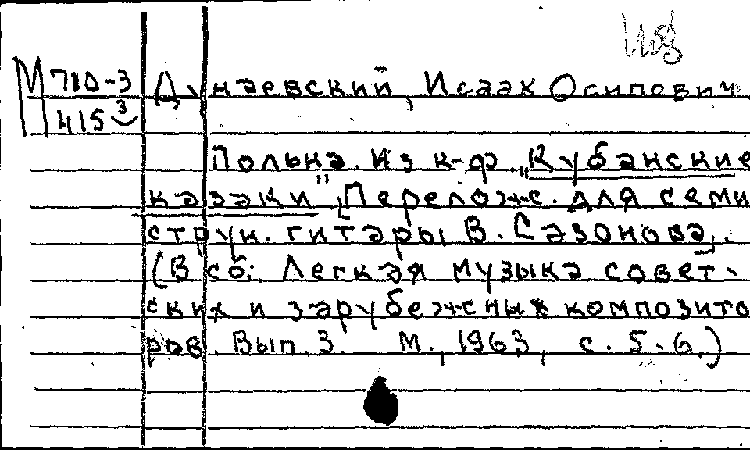 М 710-3
415 3
Дунаевский, Исаак Осипович.
Полька. Из к-ф. „Кубанские
казаки". Переложс. для семи
струн. гитары В. Сазонова.
(В сб: Легкая музыка совет-
ских и зарубежных композито
ров. Вып. 3. М., 1963, с. 5-6.)